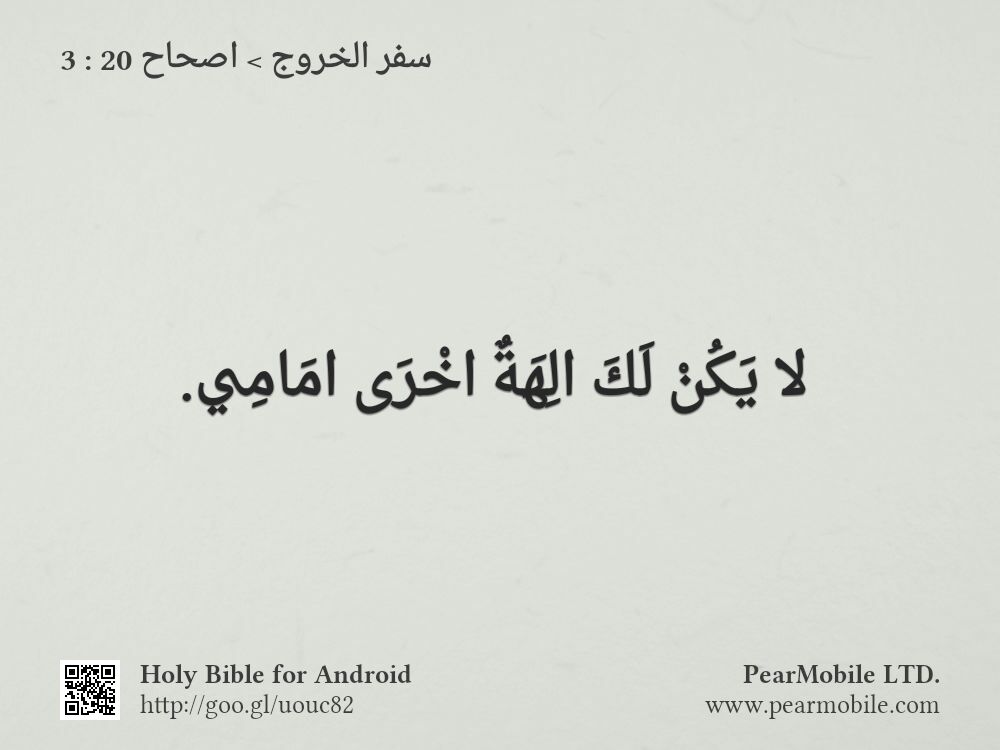 سفر الخروج > اصحاح 20 : 3
لا يَكُنْ لَكَ الِهَةٌ اخْرَى امَامِي.
Holy Bible for Android
http://goo.gl/uouc82
PearMobile LTD.
www.pearmobile.com